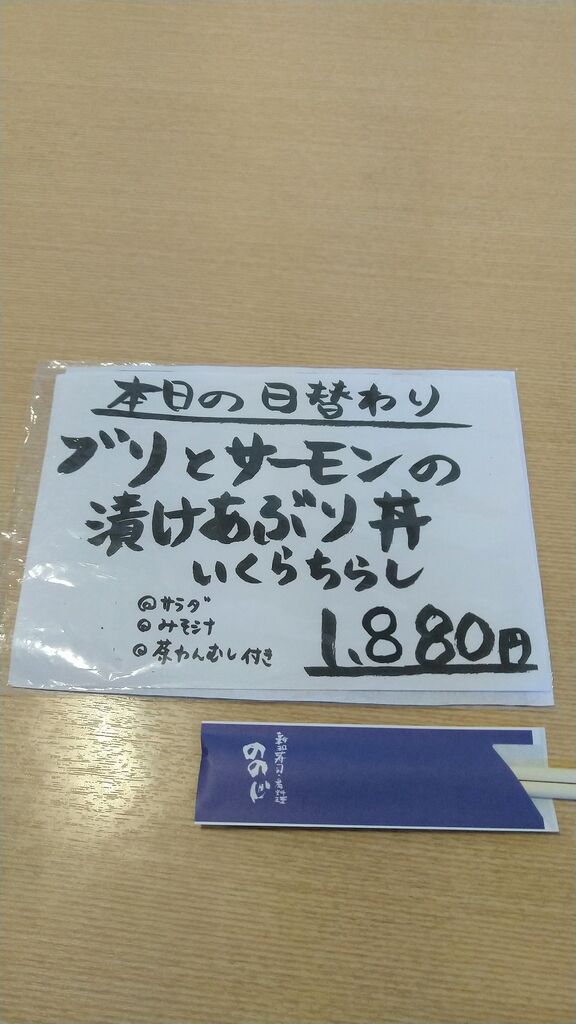 本日の日替わり
ブリとサーモンの
漬けあぶり丼
いくらちらし
◎サラダ
◎みそ汁
◎茶わんむし付き
1,880円